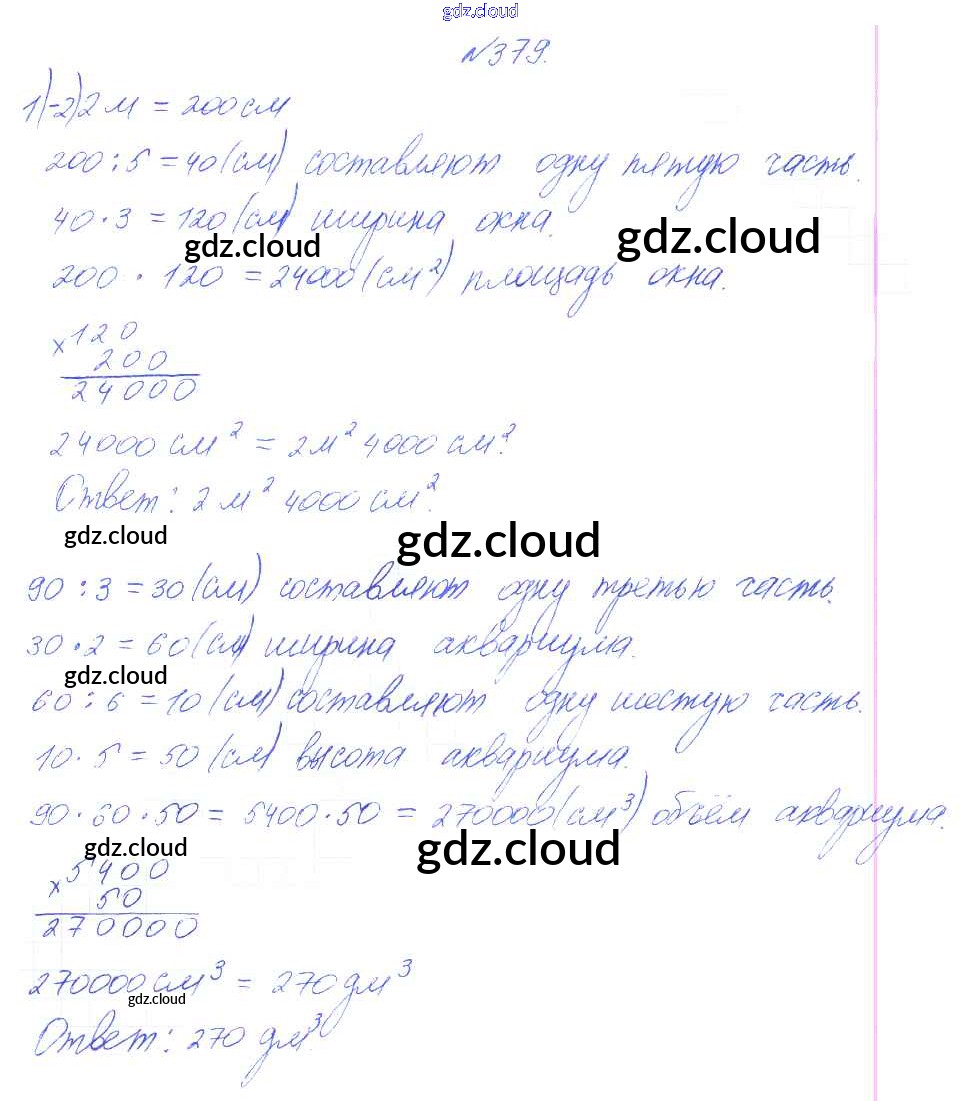 gdz.cloud
№379.
1)-2) 2 м = 200 см
200 : 5 = 40 (см) составляют одну пятую часть.
40 · 3 = 120 (см) ширина окна.
gdz.cloud gdz.cloud
200 · 120 = 24000 (см²) площадь окна.
× 120
200
24000
24000 см² = 2 м² 4000 см².
Ответ: 2 м² 4000 см².
gdz.cloud gdz.cloud
90 : 3 = 30 (см) составляют одну третью часть.
30 · 2 = 60 (см) ширина аквариума.
gdz.cloud
60 : 6 = 10 (см) составляют одну шестую часть.
10 · 5 = 50 (см) высота аквариума.
90 · 60 · 50 = 5400 · 50 = 270000 (см³) объём аквариума.
gdz.cloud gdz.cloud
× 5400
50
270000
270000 см³ = 270 дм³
gdz.cloud
Ответ: 270 дм³.